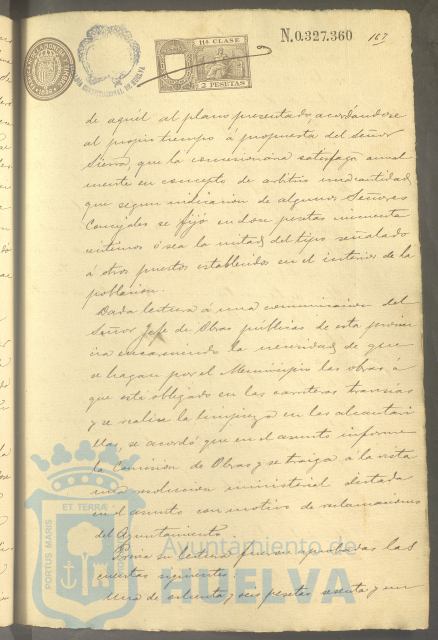 N.0.327.360
167
11ª CLASE
2 PESETAS
de aquél al plano presentado, acordándose
al propio tiempo á propuesta del Señor
Sierra, que la concesionaria satisfaga anual
mente en concepto de arbitrio una cantidad
que segun indicacion de algunos Señores
Concejales se fijó en doce pesetas cincuenta
céntimos ó sea la mitad del tipo señalado
á otros puestos establecidos en el interior de la
poblacion.
Dada lectura á una comunicacion del
Señor Jefe de Obras públicas de esta provin
cia encareciendo la necesidad de que
se hagan por el Municipio las obras á
que está obligado en las carreteras travesías
y se realice la limpieza en las alcantari
llas, se acordó que en el asunto informe
la Comision de Obras y se traiga á la vista
una resolucion ministerial dictada
en el asunto con motivo de reclamaciones
del Ayuntamiento.
Previa su lectura fueron aprobadas las
cuentas siguientes:
Una de ochenta y seis pesetas sesenta y un
PORTUS MARIS ET TERRAE
Ayuntamiento de
HUELVA